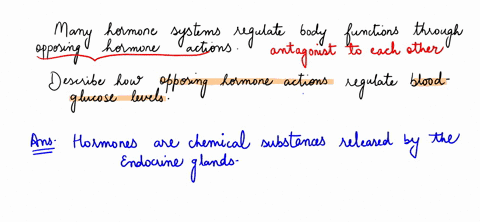 Many hormone systems regulate body functions through
opposing hormone actions. antagonist to each other
Describe how opposing hormone actions regulate blood-
glucose levels.
Ans. Hormones are chemical substances released by the
Endocrine glands.